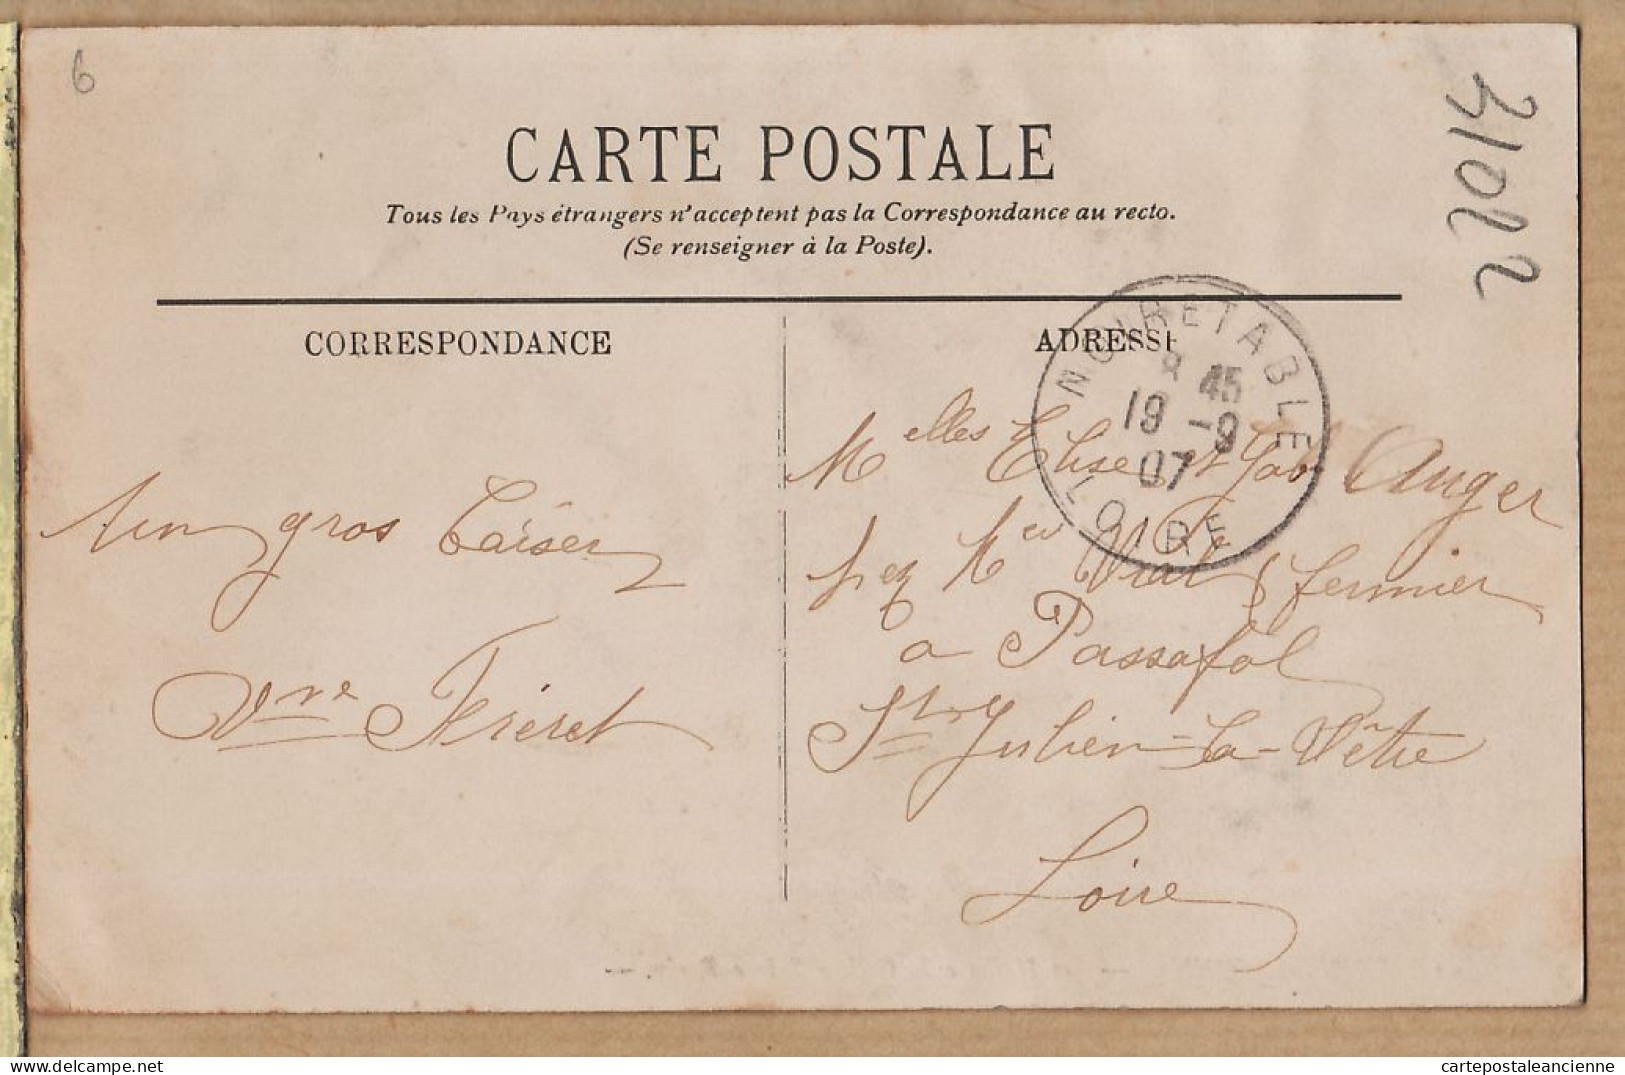 6
31012
CARTE POSTALE
Tous les Pays étrangers n'acceptent pas la Correspondance au recto.
(Se renseigner à la Poste).
CORRESPONDANCE
ADRESSE
NOIRETABLE
8 45
19 -9
07
LOIRE
Un gros baiser
Vve Frèret
Melles Elise et Auger
chez Mr Vial fermier
a Passafol
St Julien-la-Vêtre
Loire
cartepostaleancienne